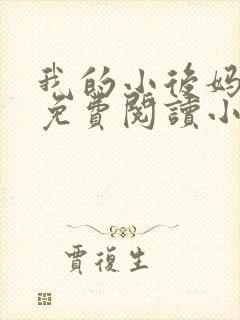 我的小後妈
免費閱讀小
賈復生